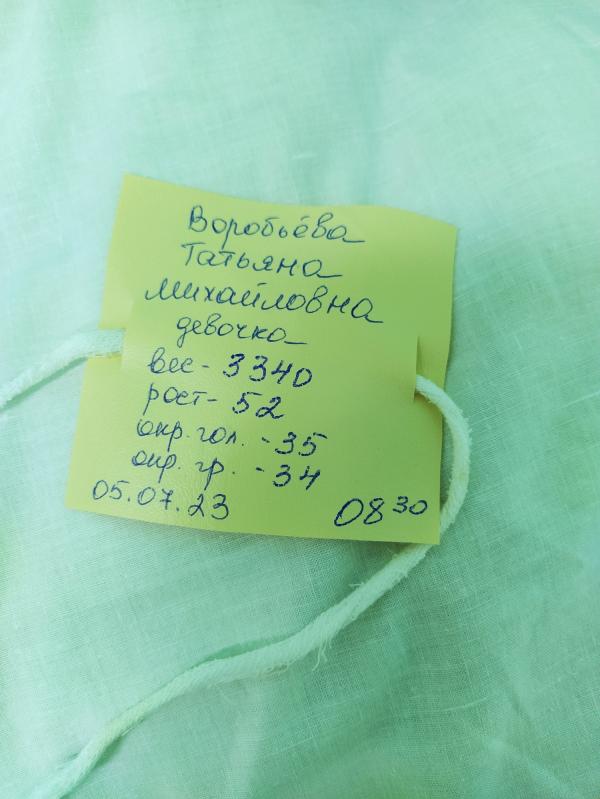 Воробьёва
Татьяна
Михайловна
девочка
вес - 3340
рост - 52
окр. гол. - 35
окр. гр. - 34
05.07.23 08 30